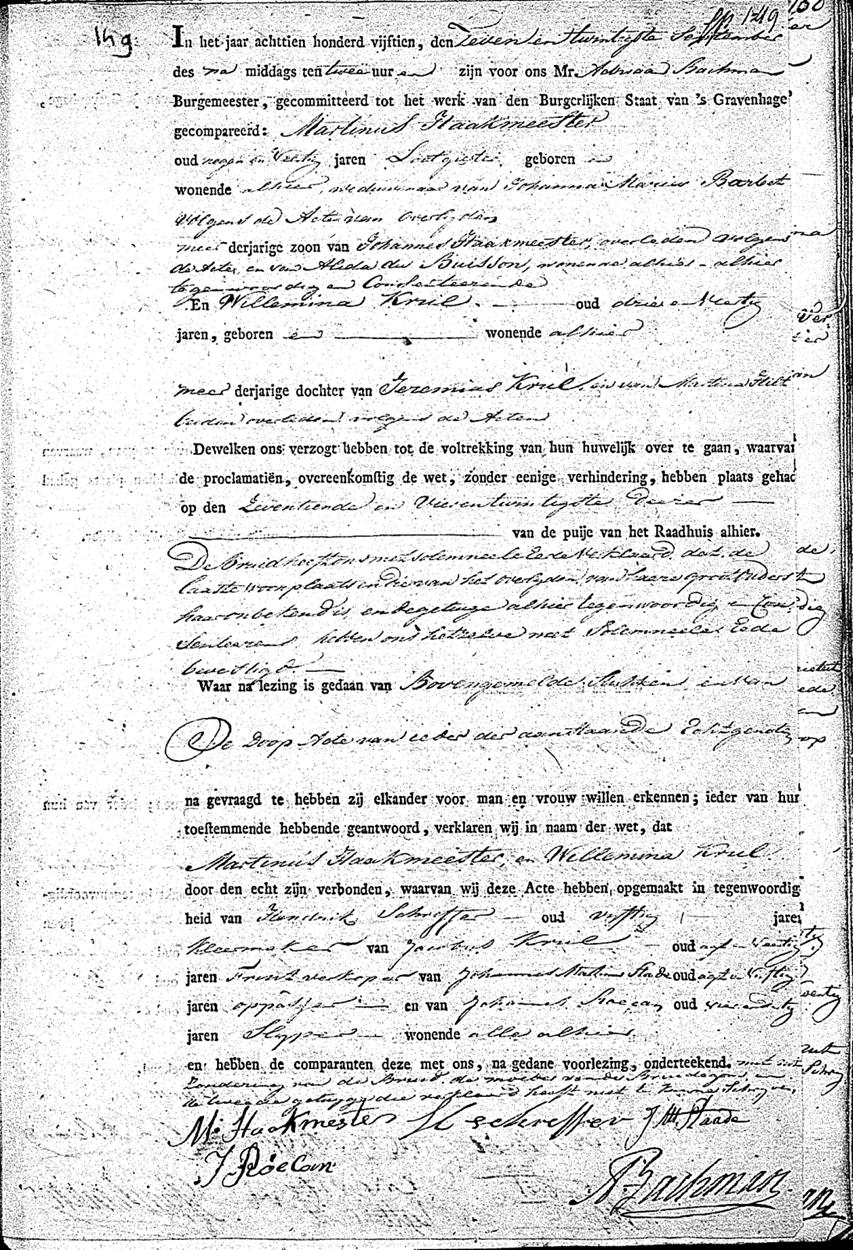 149 fo 149 150
In het jaar achttien honderd vijftien, den Zeven en twintigste September
des na middags ten twee uur en zijn voor ons Mr. Adriaan Bachman
Burgemeester, gecommitteerd tot het werk van den Burgerlijken Staat van 's Gravenhage
gecompareerd: Martinus Haakmeester
oud negen en Veertig jaren Lootgieter geboren en
wonende alhier, weduwnaar van Johanna Maria Barbet
volgens de Acten van overlyden
meer derjarige zoon van Johannes Haakmeester, overleden volgens
de Acte, en van Alida du Buisson, wonende alhier - alhier
tegenwoordig en Consenteerende
En Willemina Krul oud drie en Veertig
jaren, geboren en wonende alhier
meer derjarige dochter van Jeremias Krul, en van Martina
beiden overleden volgens de Acten
Dewelken ons verzogt hebben tot de voltrekking van hun huwelijk over te gaan, waarvan
de proclamatiën, overeenkomstig de wet, zonder eenige verhindering, hebben plaats gehad
op den Zeventiende en Vierentwintigste dezer
van de puije van het Raadhuis alhier.
De Bruid heeft ons met solemneele Eede Verklaard, dat de
laatste woonplaats en die van het overlyden van haare grootouders
haar onbekend is, en de getuige alhier tegenwoordig en Con
senteerend, hebben ons hetzelve met Solemneele Eede
bevestigd
Waar na lezing is gedaan van Bovengemelde Stukken, en van
De Doop Acte van ieder der aanstaande Echtgenoten
na gevraagd te hebben zij elkander voor man en vrouw willen erkennen; ieder van hun
toestemmende hebbende geantwoord, verklaren wij in naam der wet, dat
Martinus Haakmeester, en Willemina Krul
door den echt zijn verbonden, waarvan wij deze Acte hebben opgemaakt in tegenwoordig
heid van Hendrik Scheffer oud vyftig jaren
Kleermaker van Jacobus Krul oud agt en Veertig
jaren Fruit verkoper van Johannes Martinus Stade oud agt en Vyftig
jaren oppasser en van Johannes Roelan oud vier en
jaren Slyper wonende alle alhier
en hebben de comparanten deze met ons, na gedane voorlezing, onderteekend, met uit
zondering van de Bruid, de moeder van de Bruidegom en
de tweede getuyge die verklaard heeft niet te kunnen Schryven
M. Haakmeester H Scheffer J M Staade
J Roelan
A Bachman